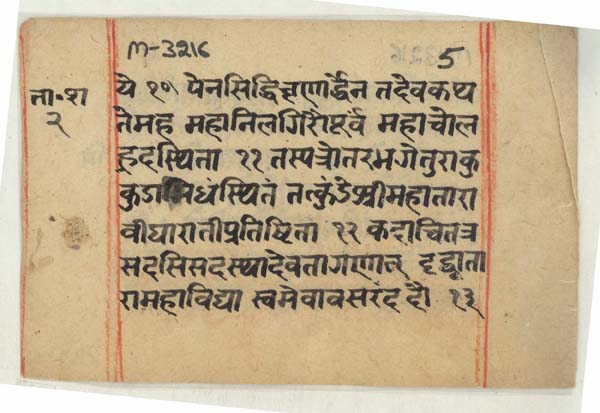 M-3216
5
ता॰श
२
ये १० येनसिद्धिच्चणार्द्धेन तदैवकथ्य
तेमह महानिलगिरौपूर्वं महाचोल
ह्रदस्थिता ११ तस्यचोतरभगेतुराकु
स्थितं तत्कुंडेश्रीमहातारा
वीघारातीप्रतिष्ठिता १२ कदाचितत्र
सदसिसदस्थादेवतागणान् दृष्ट्वाता
रामहाविद्या स्वमेवावसरंददौ १३